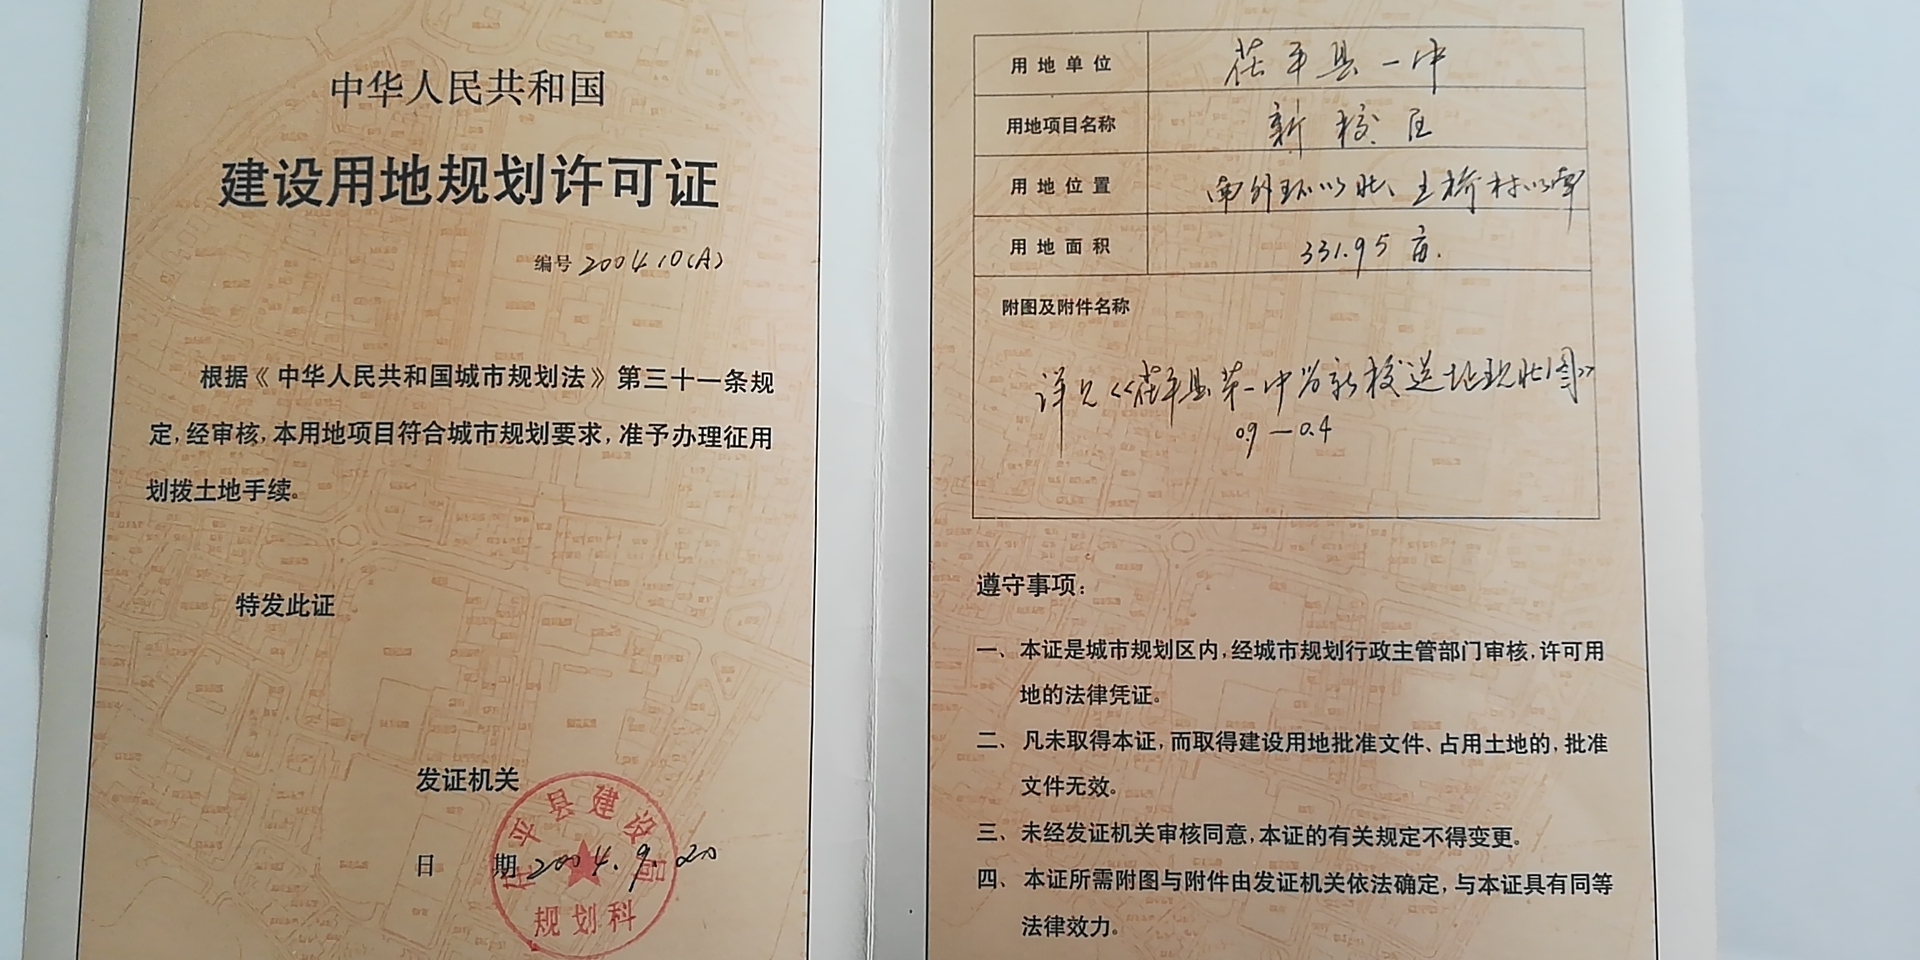 中华人民共和国
建设用地规划许可证
编号 2004 10(A)
根据《中华人民共和国城市规划法》第三十一条规
定,经审核,本用地项目符合城市规划要求,准予办理征用
划拨土地手续。
特发此证
发证机关
茌平县建设局
规划科
日 期 2004.9.20
用地单位 茌平县一中
用地项目名称 新校区
用地位置 南外环以北、王桥村以南
用地面积 331.95亩.
附图及附件名称
详见《茌平县第一中学新校选地现状图》
09—04
遵守事项:
一、本证是城市规划区内,经城市规划行政主管部门审核,许可用
地的法律凭证。
二、凡未取得本证,而取得建设用地批准文件、占用土地的,批准
文件无效。
三、未经发证机关审核同意,本证的有关规定不得变更。
四、本证所需附图与附件由发证机关依法确定,与本证具有同等
法律效力。